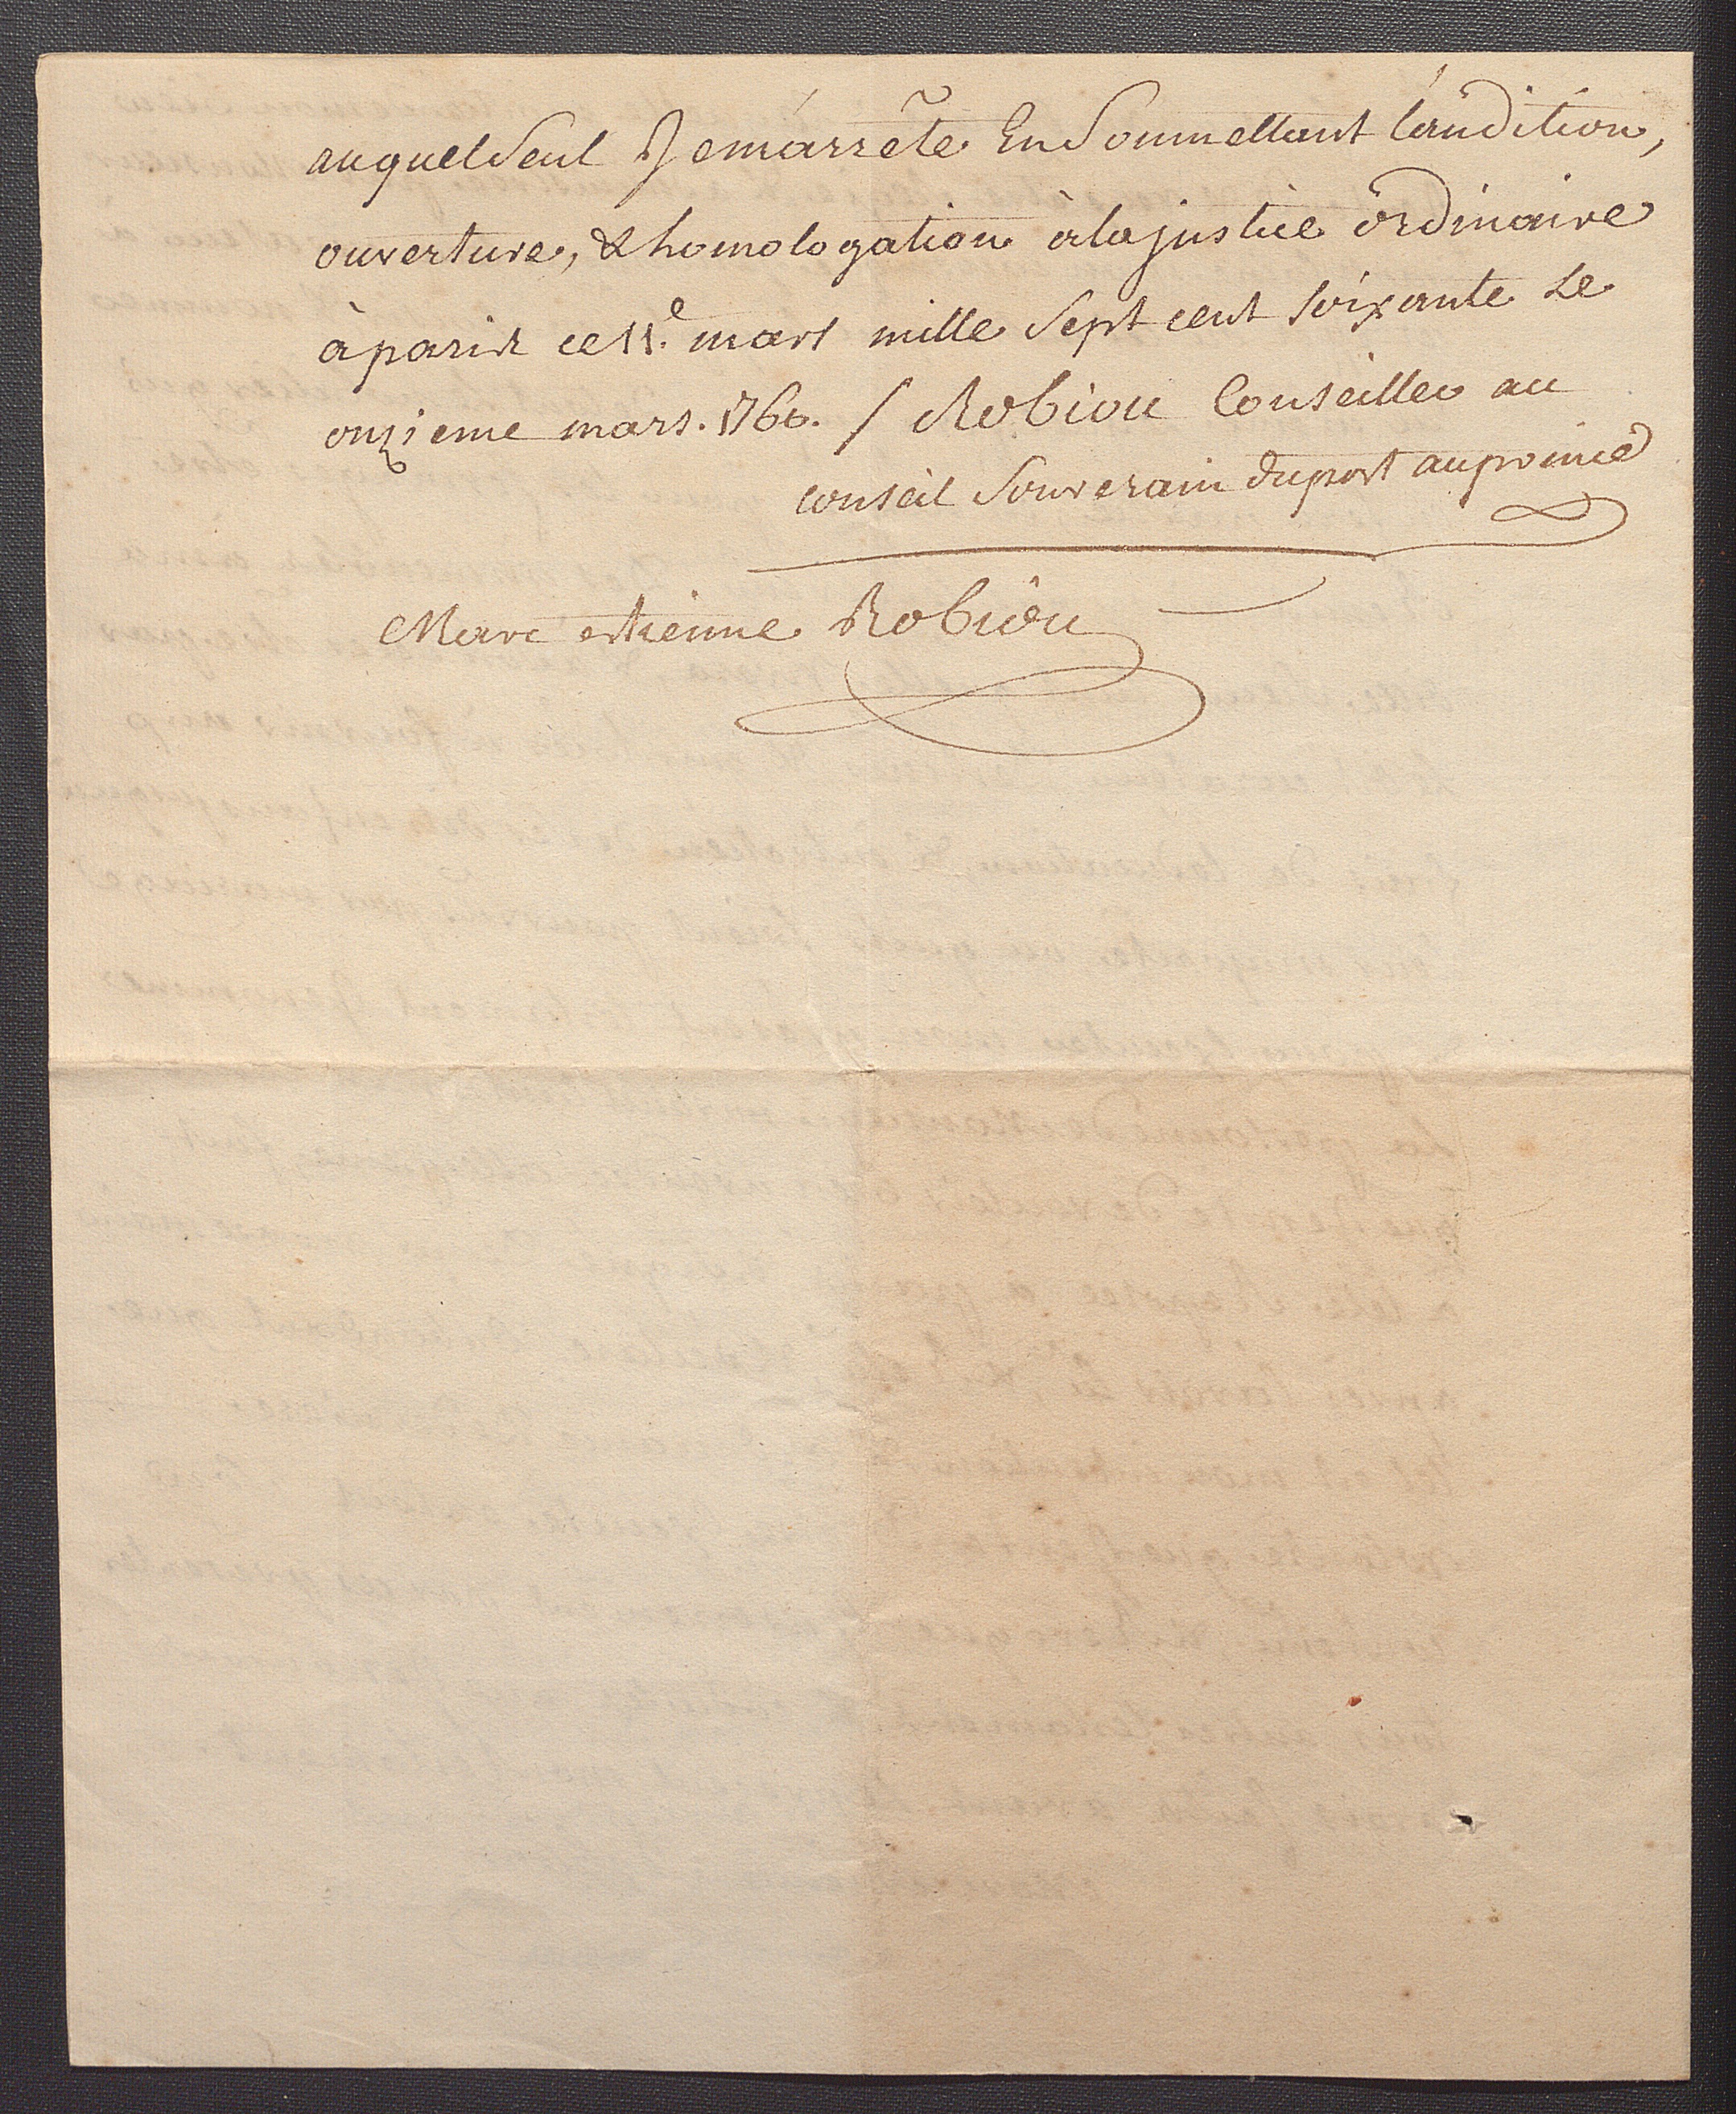 auquel Seul Je m'arrête En Soumettant l'audition,
ouverture, & homologation à la justice ordinaire
à paris ce 11e. mars mille Sept cent soixante Le
onzieme mars. 1760. / Robiou Conseiller au
conseil Souverain du port au prince
Marc etienne Robiou